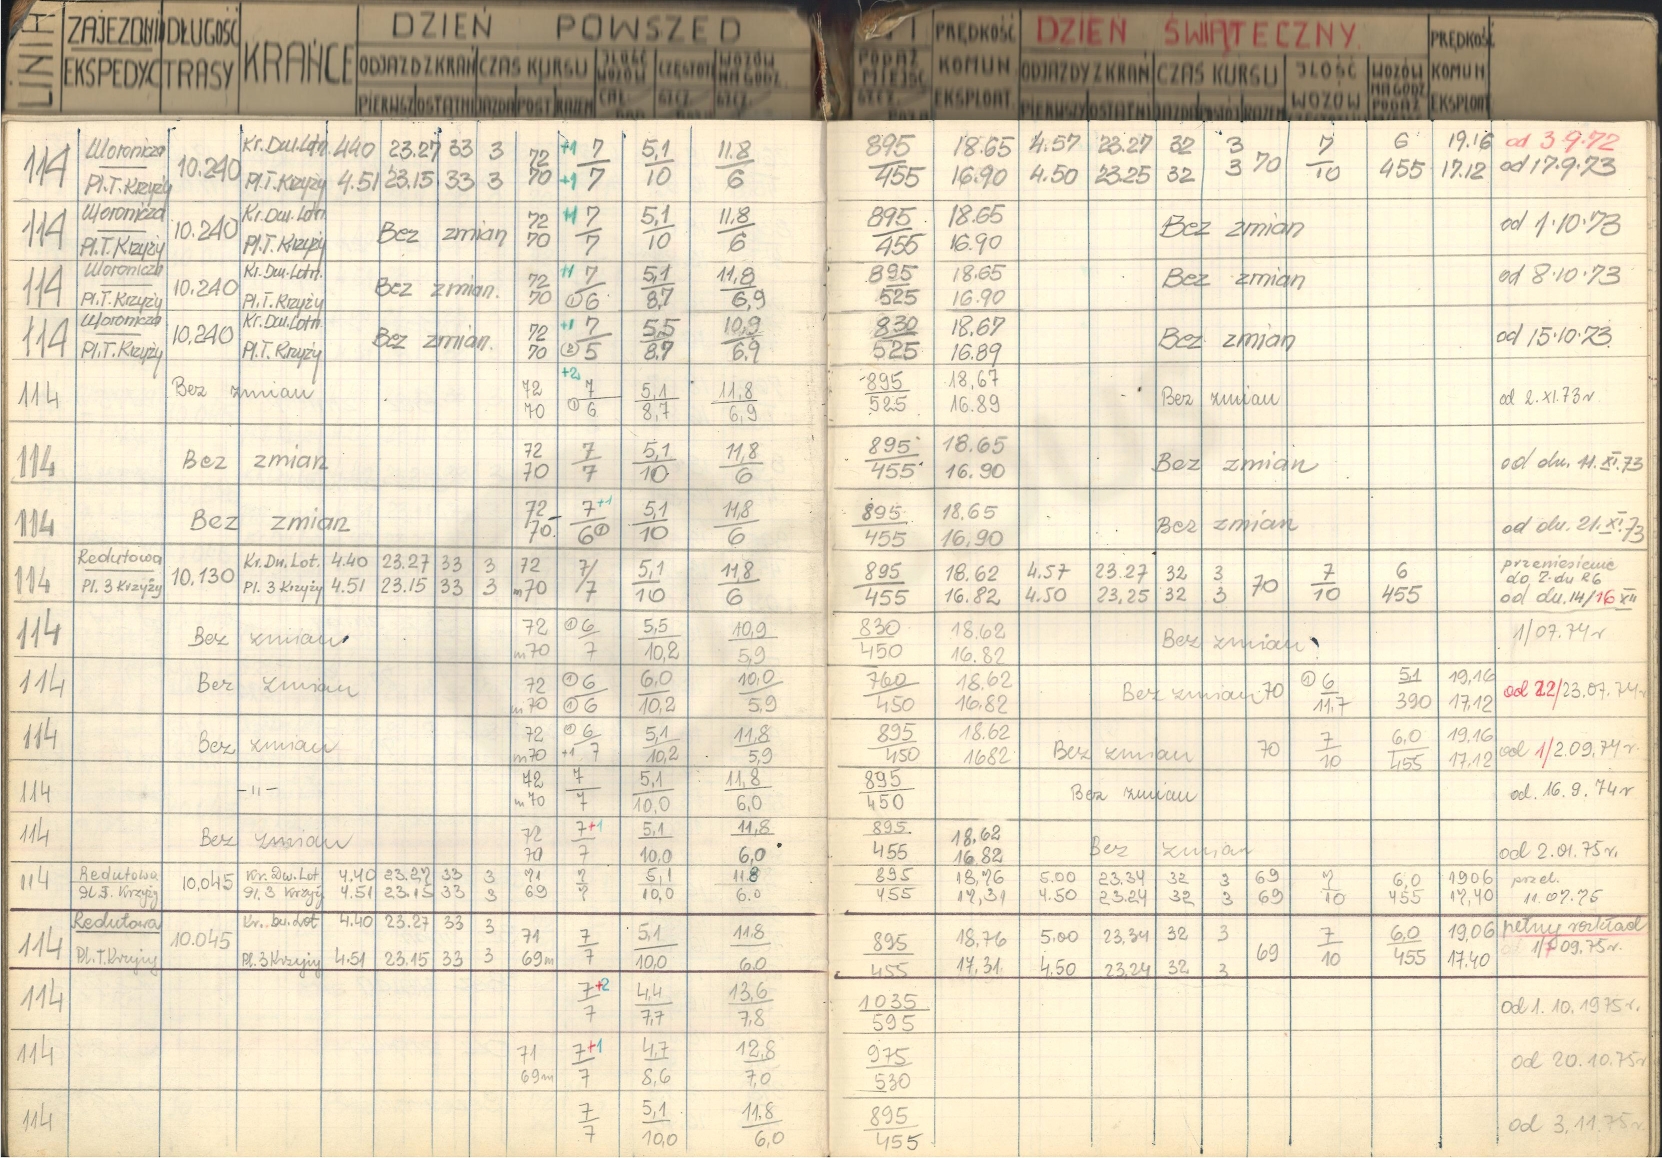 LINIA ZAJEZDNI EKSPEDYC DŁUGOŚĆ TRASY KRAŃCE DZIEŃ POWSZED
ODJAZD Z KRAŃ CZAS KURSU ILOŚĆ WOZÓW CZĘSTOT WOZÓW NA GODZ.
PIERWSZ OSTATNI JAZDA POST RAZEM
PODAŻ MIEJSC PRĘDKOŚĆ KOMUN EKSPLOAT. DZIEŃ ŚWIĄTECZNY PRĘDKOŚĆ KOMUN EKSPLOAT
ODJAZDY Z KRAŃ CZAS KURSU ILOŚĆ WOZÓW WOZÓW NA GODZ PODAŻ
PIERWSZY OSTATNI JAZDA RAZEM
114 Woronicza 10.240 Kr.Dw.Lotn. 4.40 23.27 33 3 72 +1 7 5,1 11.8 895 18.65 4.57 23.27 32 3 70 7 6 19.16 od 3.9.72
Pl.T.Krzyży Pl.T.Krzyży 4.51 23.15 33 3 70 +1 7 10 6 455 16.90 4.50 23.25 32 3 10 455 17.12 od 17.9.73
114 Woronicza 10.240 Kr.Dw.Lotn. Bez zmian 72 +1 7 5,1 11.8 895 18.65 Bez zmian od 1.10.73
Pl.T.Krzyży Pl.T.Krzyży 70 7 10 6 455 16.90
114 Woronicza 10.240 Kr.Dw.Lotn. Bez zmian. 72 +1 7 5,1 11,8 895 18.65 Bez zmian od 8.10.73
Pl.T.Krzyży Pl.T.Krzyży 70 ① 6 8,7 6,9 525 16.90
114 Woronicza 10.240 Kr.Dw.Lotn. Bez zmian. 72 +1 7 5,5 10,9 830 18.67 Bez zmian od 15.10.73
Pl.T.Krzyży Pl.T.Krzyży 70 ② 5 8.7 6.9 525 16.89
114 Bez zmian 72 +2 7 5,1 11,8 895 18,67 Bez zmian od 2.XI.73r
70 ① 6 8,7 6,9 525 16.89
114 Bez zmian 72 7 5,1 11,8 895 18.65 Bez zmian od dn. 11.XI.73
70 7 10 6 455 16.90
114 Bez zmian 72 7+1 5,1 11,8 895 18.65 Bez zmian od dn. 21.XI.73
70 6① 10 6 455 16,90
114 Redutowa 10.130 Kr.Dw.Lot. 4.40 23.27 33 3 72 7 5,1 11,8 895 18.62 4.57 23.27 32 3 70 7 6 przeniesienie do Z.du R6
Pl. 3 Krzyży Pl. 3 Krzyży 4.51 23.15 33 3 m70 7 10 6 455 16.82 4.50 23,25 32 3 10 455 od dn.14/16 XII
114 Bez zmian 72 ① 6 5,5 10,9 830 18.62 Bez zmian 1/07.74r
m70 7 10,2 5,9 450 16.82
114 Bez zmian 72 ① 6 6,0 10,0 760 18.62 Bez zmian 70 ① 6 5,1 19,16 od 22/23.07.74r
m70 ① 6 10,2 5,9 450 16.82 11,7 390 17,12
114 Bez zmian 72 ① 6 5,1 11,8 895 18.62 Bez zmian 70 7 6,0 19,16 od 1/2.09.74r.
m70 +1 7 10,2 5,9 450 1682 10 455 17.12
114 -"- 72 7 5,1 11,8 895 Bez zmian od. 16.9.74r
m70 7 10,0 6,0 450
114 Bez zmian 72 7+1 5,1 11,8 895 18,62 Bez zmian od 2.01.75r.
70 7 10,0 6,0 455 16.82
114 Redutowa 10,045 Kr.Dw.Lot 4,40 23,27 33 3 71 7 5,1 11.8 895 18,76 5.00 23.34 32 3 69 7 6,0 1906 przed.
Pl.3. Krzyży Pl.3 Krzyży 4.51 23.15 33 3 69 7 10,0 6.0 455 17,31 4.50 23.24 32 3 69 10 455 17,40 11.07.75
114 Redutowa 10.045 Kr.Dw.Lot 4.40 23.27 33 3 71 7 5,1 11.8 895 18,76 5.00 23,34 32 3 69 7 6,0 19,06 pełny rozkład
Pl.T.Krzyży Pl.3 Krzyży 4.51 23.15 33 3 69m 7 10,0 6.0 455 17.31 4,50 23.24 32 3 10 455 17.40 od 1/09.75r.
114 7+2 4,4 13,6 1035 od 1.10.1975r.
7 7,7 7,8 595
114 71 7+1 4,7 12,8 975 od 20.10.75r
69m 7 8,6 7,0 530
114 7 5,1 11,8 895 od 3.11.75r
7 10,0 6,0 455